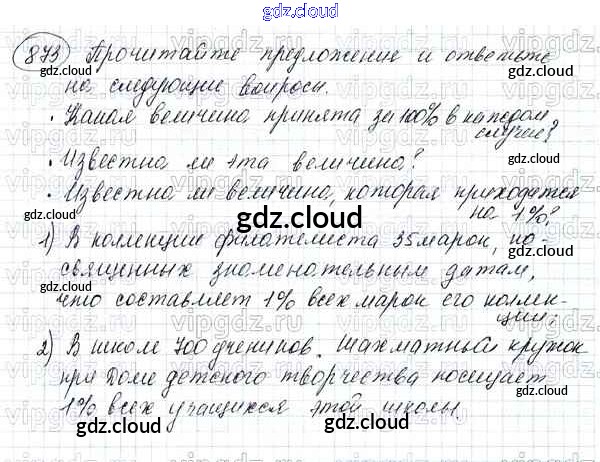 gdz.cloud
873) Прочитайте предложение и ответьте
на следующие вопросы.
• Какая величина принята за 100% в каждом
случае?
• Известна ли эта величина?
• Известна ли величина, которая приходется
на 1%?
gdz.cloud
1) В коллекции филателиста 35 марок, по-
священных знаменательным датам,
что составляет 1% всех марок его коллек-
ции;
2) В школе 700 учеников. Шахматный кружок
при Доме детского творчества посещает
1% всех учащихся этой школы.
gdz.cloud